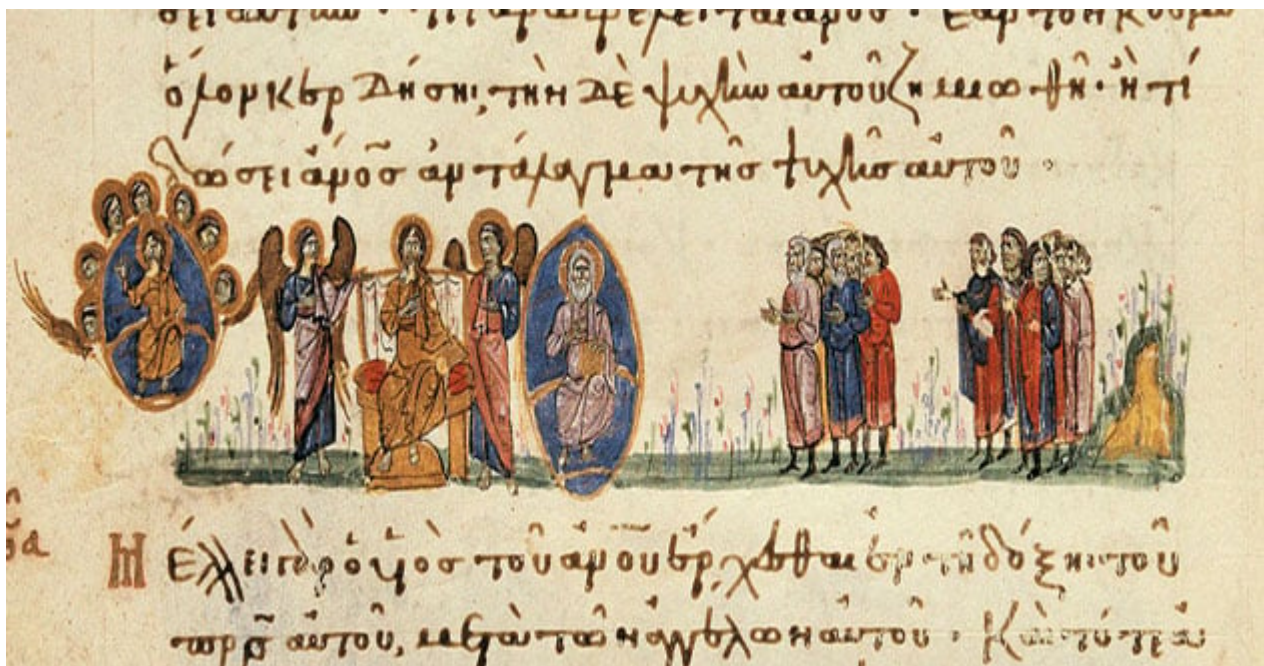 σει αυτήν· τί γαρ ωφελεῖται ανος· εαν τον κόσμον
ὅλον κερδήσηι, τὴν δὲ ψυχὴν αυτοῦ ζημιωθῆ· ἢ τί
δώσει ἀνο̄ς ἀντάλαγμα τῆς ψυχῆς αυτοῦ·
Μέλλει γὰρ ὁ υἱὸς τοῦ ἀνο̄υ ἔρχεσθαι ἐν τῆ δόξηι τοῦ
πρ̄ς αυτοῦ, μετὰ τῶν ἀγγέλων αυτοῦ· Καὶ τότε ἀ